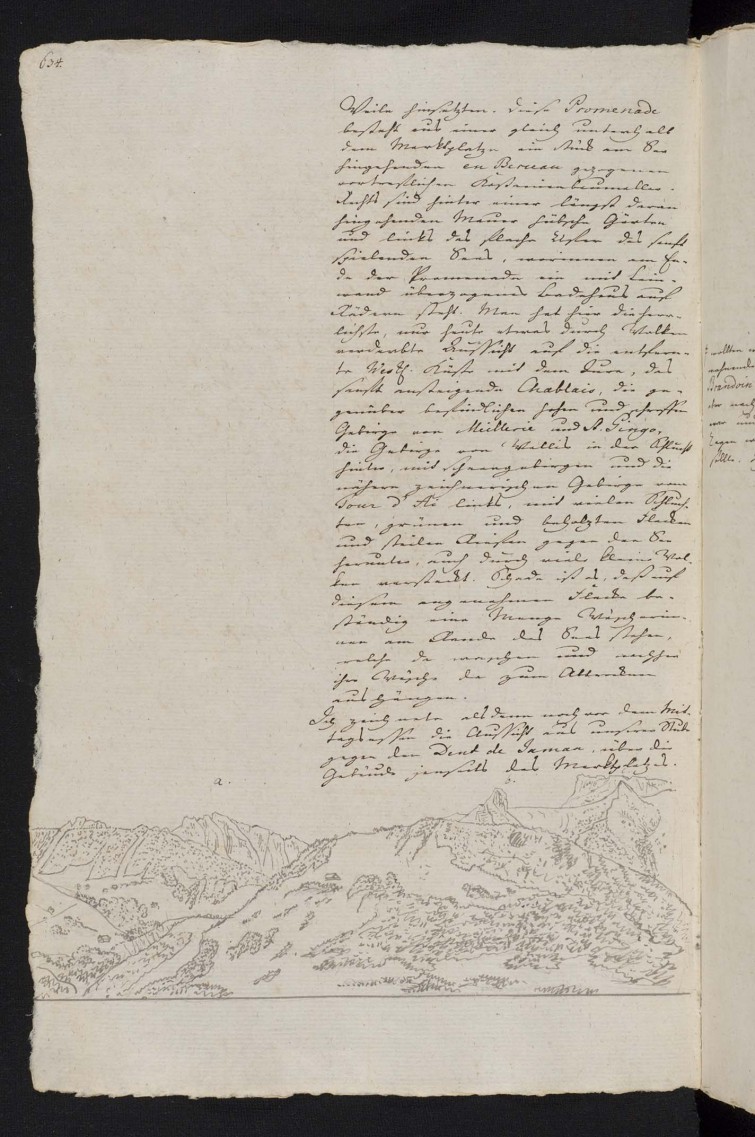 634.
Weile hinsetzten. Diese Promenade
besteht aus einer gleich unterhalb
dem Marktplatze ein Stück am See
hingehenden en Berceau gezogenen
vortreflichen Kastanienbaumallee.
Rechts sind hinter einer längst deren
hingehenden Mauer hübsche Gärten
und links das flache Ufer des sanft
spielenden Sees, worinnen am En-
de der Promenade ein mit Lein-
wand überzogenes Badehaus auf
Rädern steht. Man hat hier die herr-
lichste, nur heute etwas durch Wolken
verderbte Aussicht auf die entfern-
te Westl. Küste mit dem Jura, das
sanft ansteigende Chablais, die ge-
genüber befindlichen hohen und schroffen
Gebirge von Meillerie und St. Gingo,
die Gebirge von Wallis in der Schlucht
hinter, mit Schneegebirgen und die
nähern zeichnerischen Gebirge vom
Tour d'Ai links, mit vielen Schluch-
ten, grünen und beholzten Flecken
und steilen Riesen gegen den See
herunter, auch durch viele kleine Wol-
ken versteckt. Schade ist es, daß auf
diesem angenehmen Flecke be-
ständig eine Menge Wäscherin-
nen am Rande des Sees stehen,
welche da waschen und nachher
ihre Wäsche da zum Abtrocknen
aushängen.
Ich zeichnete alsdenn noch vor dem Mit-
tagsessen die Aussicht aus unsrer Stube
gegen den Dent de Jaman, über die
Gebäude jenseits des Marktplatzes.
a. b.